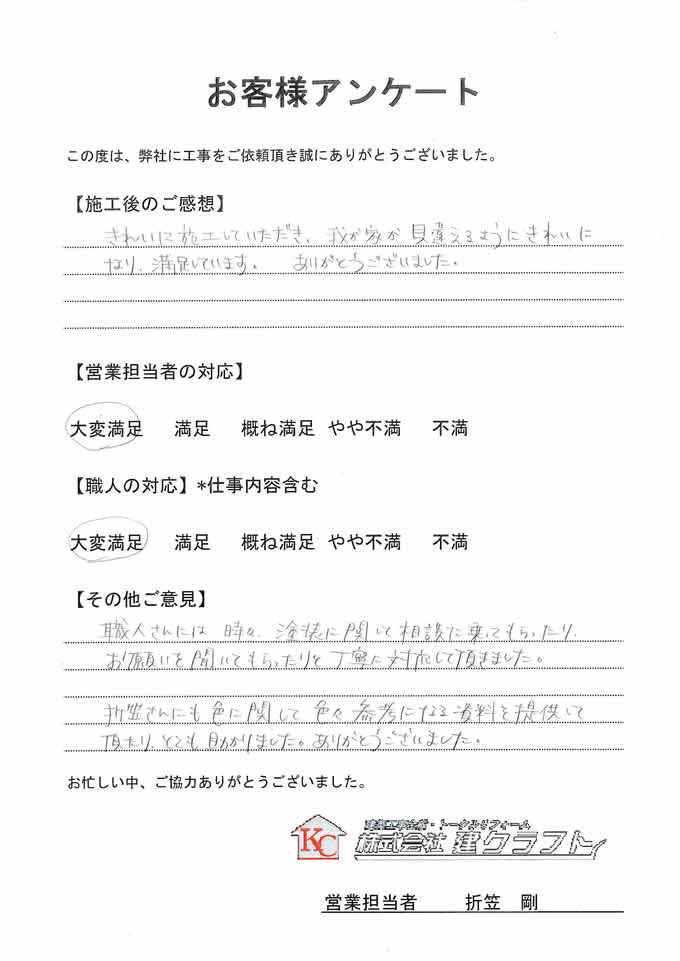 お客様アンケート
この度は、弊社に工事をご依頼頂き誠にありがとうございました。
【施工後のご感想】
きれいに施工していただき、我が家が見違えるようにきれいに
なり、満足しています。 ありがとうございました。
【営業担当者の対応】
大変満足 満足 概ね満足 やや不満 不満
【職人の対応】*仕事内容含む
大変満足 満足 概ね満足 やや不満 不満
【その他ご意見】
職人さんには 時々、塗装に関して相談に乗ってもらったり、
お願いを聞いてもらったりと丁寧に対応して頂きました。
折笠さんにも色に関して色々参考になる資料を提供して
頂たり、とても助かりました。ありがとうございました。
お忙しい中、ご協力ありがとうございました。
KC
トータルリフォーム
株式会社 建クラフト
営業担当者 折笠 剛